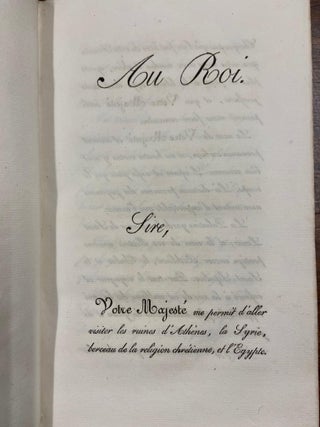 Au Roi.
Sire,
Votre Majesté me permit d'aller
visiter les ruines d'Athènes, la Syrie,
berceau de la religion chrétienne, et l'Egypte.